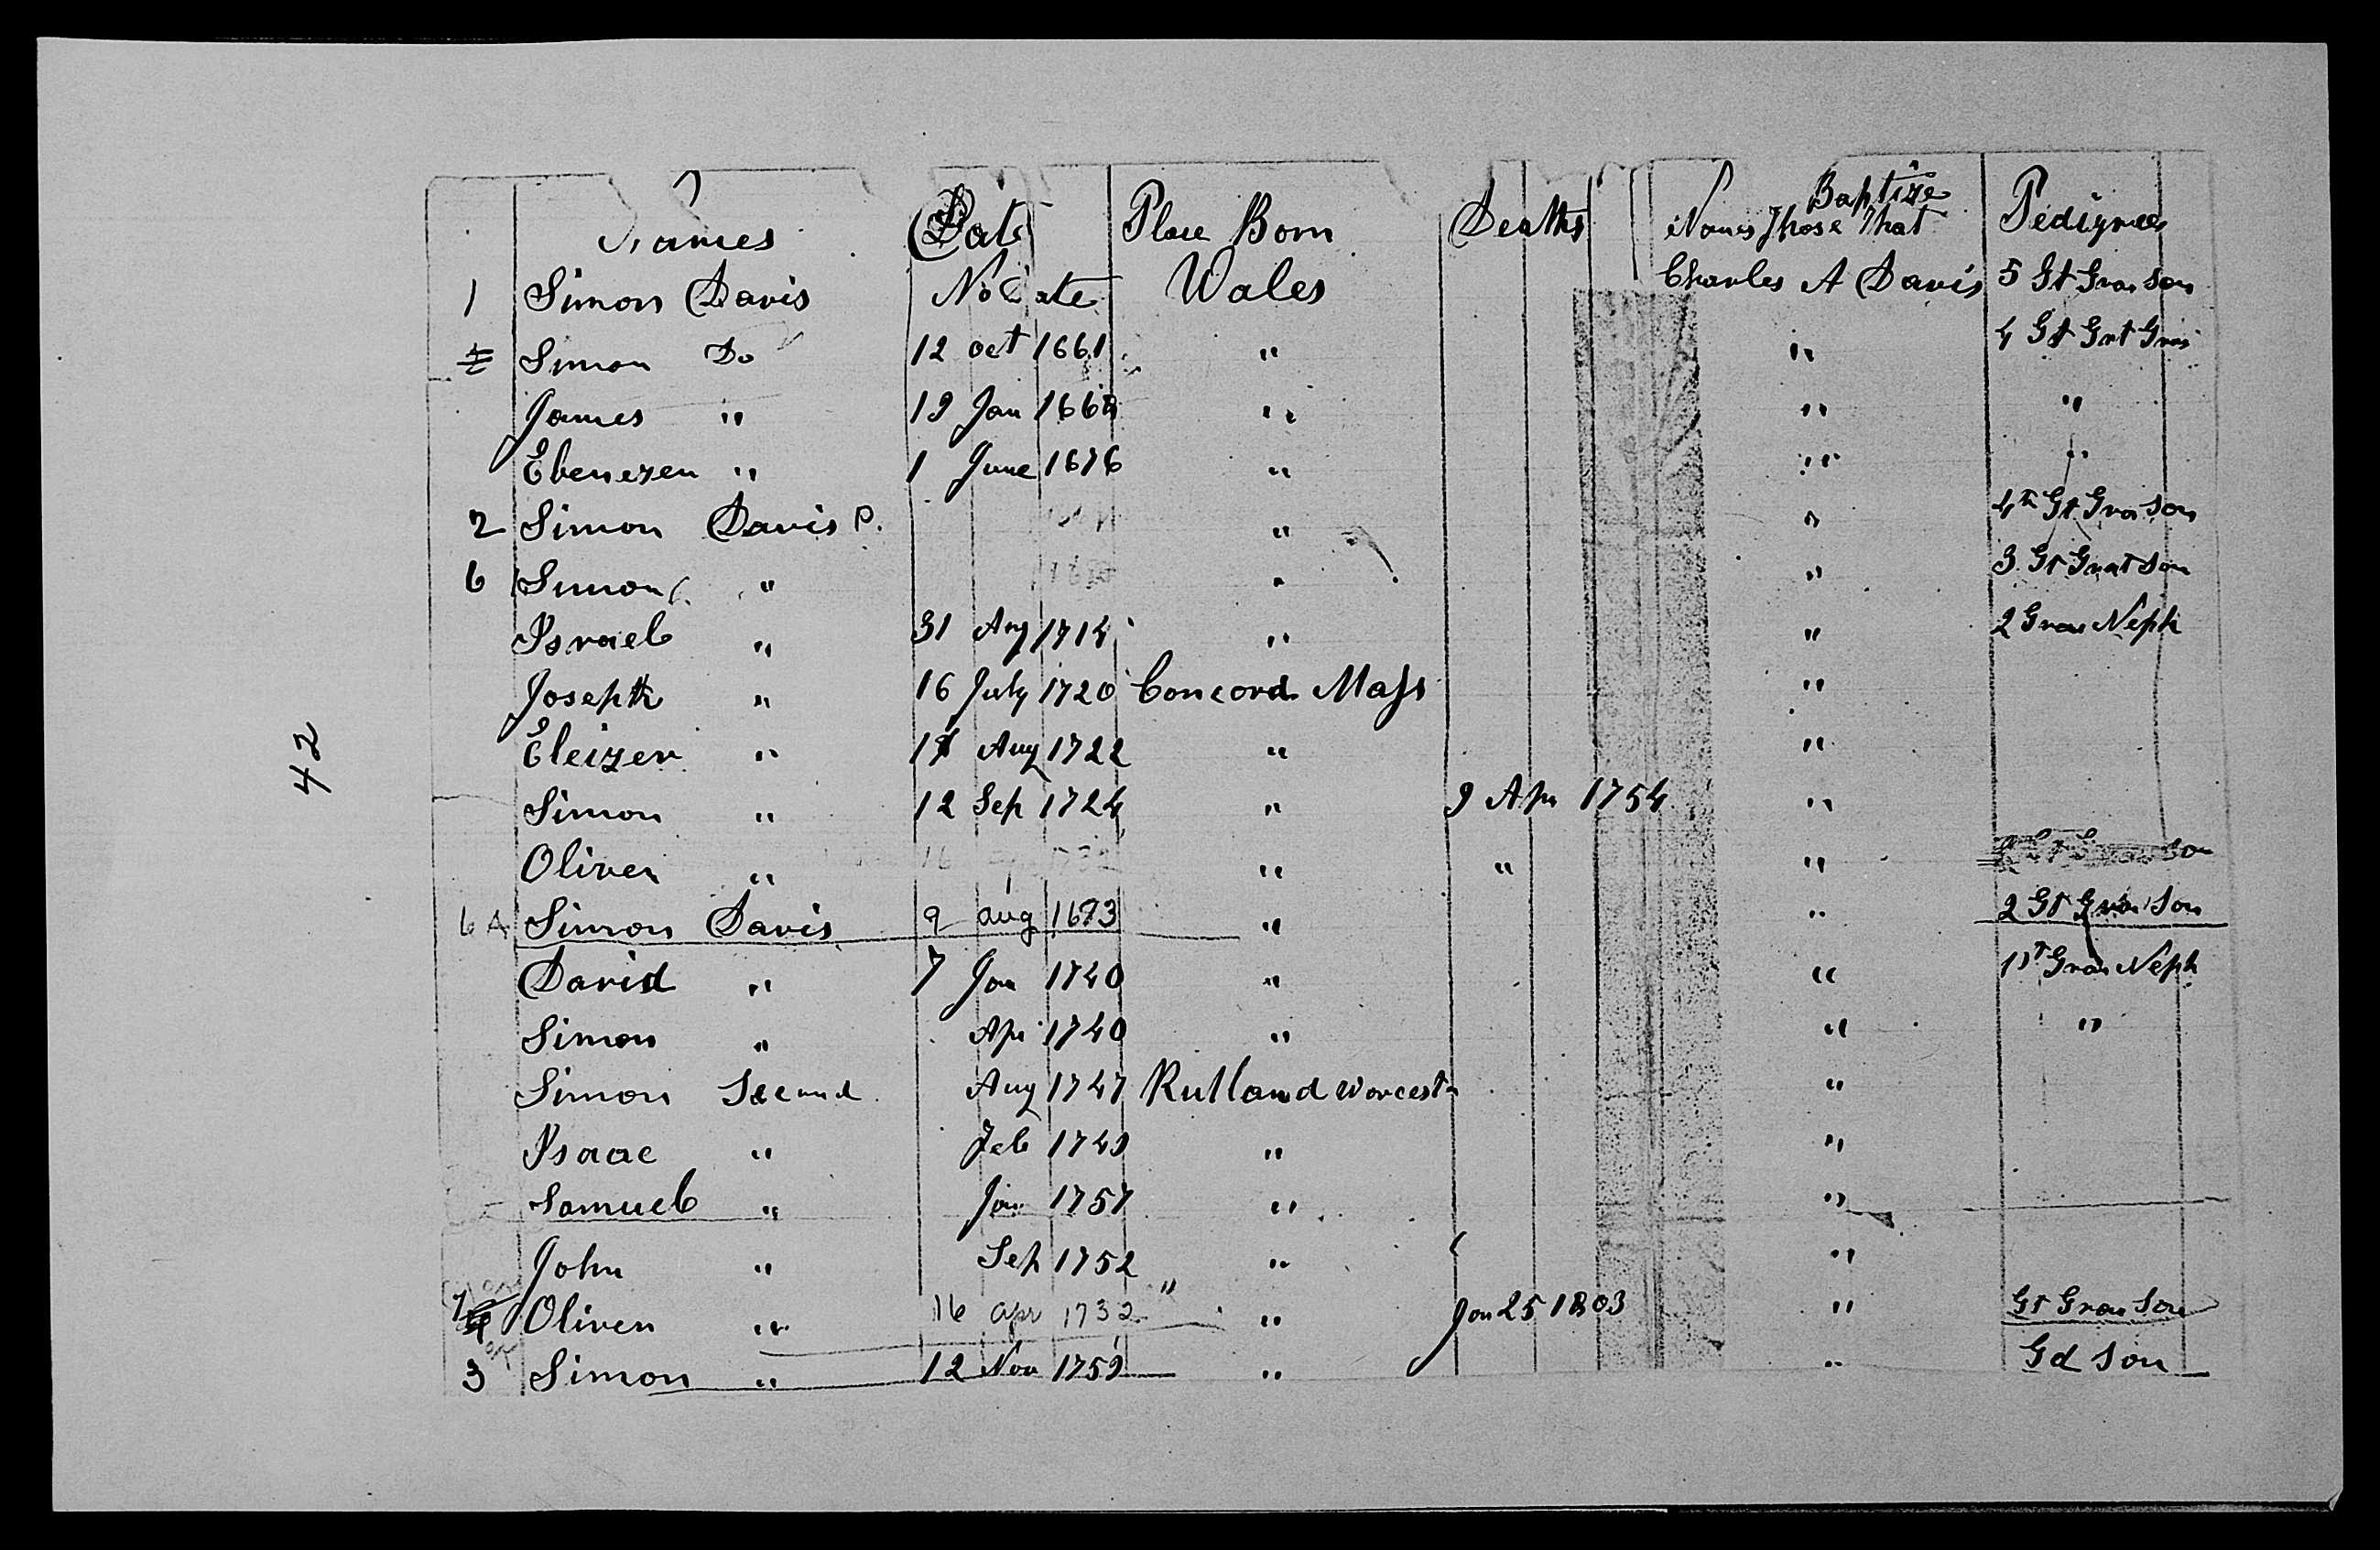 Names Date Place Born Deaths Names Those That Baptize Pedigree
1 Simon Davis No Date Wales Charles A Davis 5 Gt Gran Son
Simon Do 12 oct 1661 " " 4 Gt Grt Gran
James " 19 Jan 166 " " "
Ebenezer " 1 June 1676 " " "
2 Simon Davis P. " " 4th Gt Gra Son
6 Simon " " " 3 Gt Grat Son
Israel " 31 Aug 1714 " " 2 Gran Neph
Joseph " 16 July 1720 Concord Mass "
Eleizer " Aug 1722 " "
Simon " 12 Sep 1724 " 9 Apr 1754 "
Oliver " 16 1732 " " " Son
6 A Simon Davis 9 aug 1693 " " 2 Gt Gran Son
David " 7 Jan 1740 " " 1st Gran Neph
Simon " Apr 1740 " " "
Simon Second Aug 1747 Rutland Worcestr "
Isaac " Feb 1749 " "
Samuel " Jan 1757 " "
John " Sep 1752 " "
7 Oliver " 16 apr 1732 " " Jan 25 1803 " Gt Gran Son
3 Simon " 12 Nov 1759 " " Gd Son
42